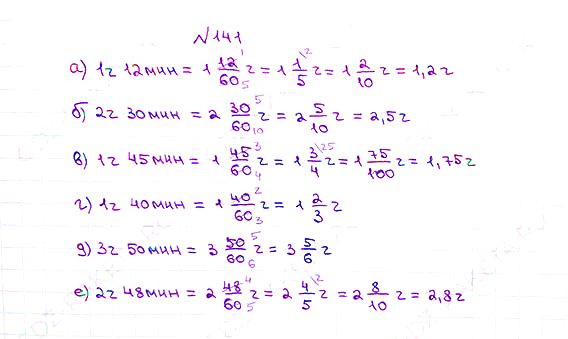 №141
а) 1ч 12мин = 1 12/60 ч = 1 1/5 ч = 1 2/10 ч = 1,2ч
б) 2ч 30мин = 2 30/60 ч = 2 5/10 ч = 2,5ч
в) 1ч 45мин = 1 45/60 ч = 1 3/4 ч = 1 75/100 ч = 1,75ч
г) 1ч 40мин = 1 40/60 ч = 1 2/3 ч
д) 3ч 50мин = 3 50/60 ч = 3 5/6 ч
е) 2ч 48мин = 2 48/60 ч = 2 4/5 ч = 2 8/10 ч = 2,8ч